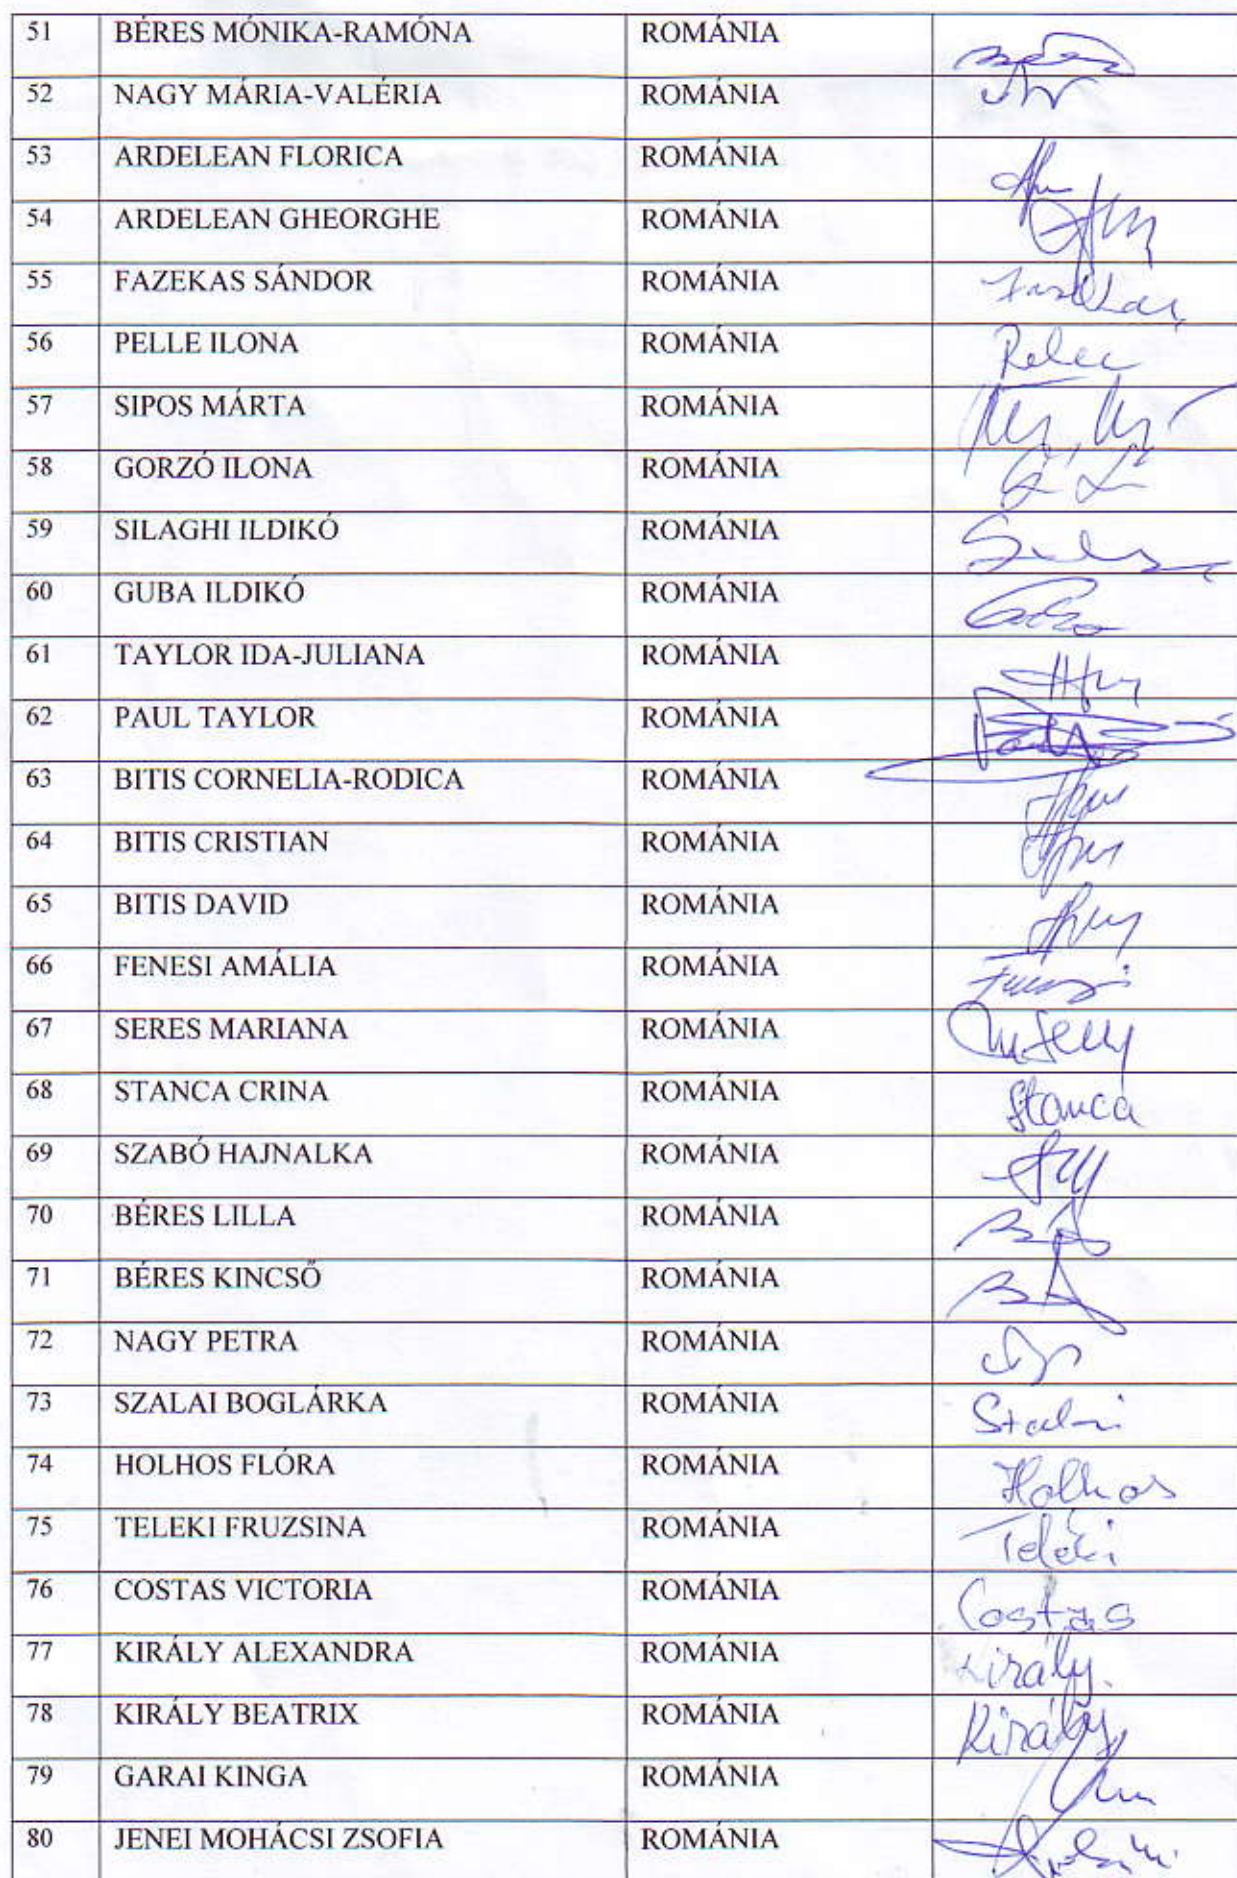 51 BÉRES MÓNIKA-RAMÓNA ROMÁNIA
52 NAGY MÁRIA-VALÉRIA ROMÁNIA
53 ARDELEAN FLORICA ROMÁNIA
54 ARDELEAN GHEORGHE ROMÁNIA
55 FAZEKAS SÁNDOR ROMÁNIA
56 PELLE ILONA ROMÁNIA
57 SIPOS MÁRTA ROMÁNIA
58 GORZÓ ILONA ROMÁNIA
59 SILAGHI ILDIKÓ ROMÁNIA
60 GUBA ILDIKÓ ROMÁNIA
61 TAYLOR IDA-JULIANA ROMÁNIA
62 PAUL TAYLOR ROMÁNIA
63 BITIS CORNELIA-RODICA ROMÁNIA
64 BITIS CRISTIAN ROMÁNIA
65 BITIS DAVID ROMÁNIA
66 FENESI AMÁLIA ROMÁNIA
67 SERES MARIANA ROMÁNIA
68 STANCA CRINA ROMÁNIA Stanca
69 SZABÓ HAJNALKA ROMÁNIA
70 BÉRES LILLA ROMÁNIA
71 BÉRES KINCSŐ ROMÁNIA
72 NAGY PETRA ROMÁNIA
73 SZALAI BOGLÁRKA ROMÁNIA
74 HOLHOS FLÓRA ROMÁNIA Holhos
75 TELEKI FRUZSINA ROMÁNIA Teleki
76 COSTAS VICTORIA ROMÁNIA Costas
77 KIRÁLY ALEXANDRA ROMÁNIA Király.
78 KIRÁLY BEATRIX ROMÁNIA Király
79 GARAI KINGA ROMÁNIA
80 JENEI MOHÁCSI ZSOFIA ROMÁNIA